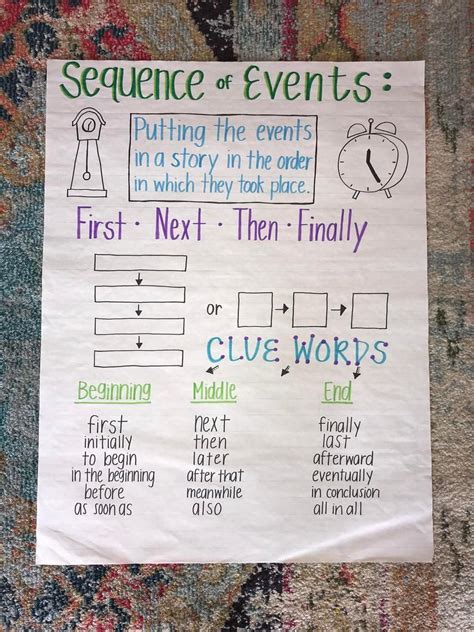 Sequence of Events:
Putting the events
in a story in the order
in which they took place.
First · Next · Then · Finally
or
CLUE WORDS
Beginning Middle End
first next finally
initially then last
to begin later afterward
in the beginning after that eventually
before meanwhile in conclusion
as soon as also all in all